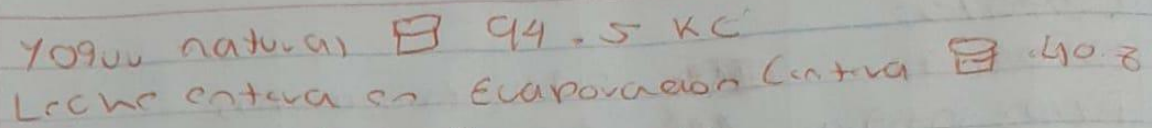 Yoguu natural 94.5 KC
Leche entera en Evaporación Centra 40.8